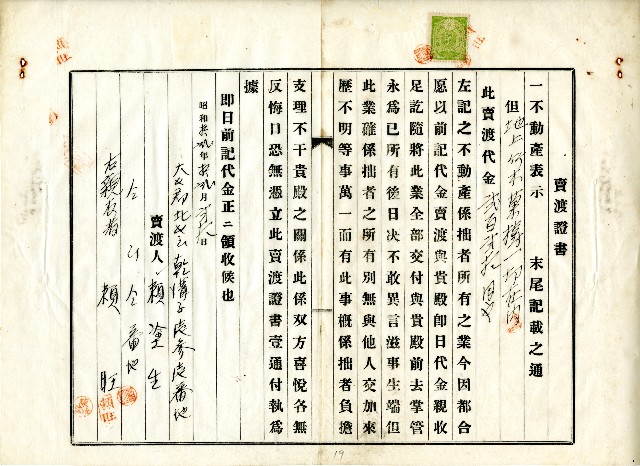 賣渡證書
一不動產表示　末尾記載之通
但地上竹木菓樹一切在內
此賣渡代金
左記之不動產係拙者所有之業今因都合
愿以前記代金賣渡與貴殿卽日代金親收
足訖隨將此業全部交付與貴殿前去掌管
永爲己所有後日决不敢異言滋事生端但
此業確係拙者之所有別無與他人交加來
歷不明等事萬一而有此事概係拙者負擔
支理不干貴殿之關係此係双方喜悅各無
反悔口恐無憑立此賣渡證書壹通付執爲
據
卽日前記代金正ニ領收候也
昭和 年 月 日
番地
賣渡人 賴 生
番地
賴 旺
19